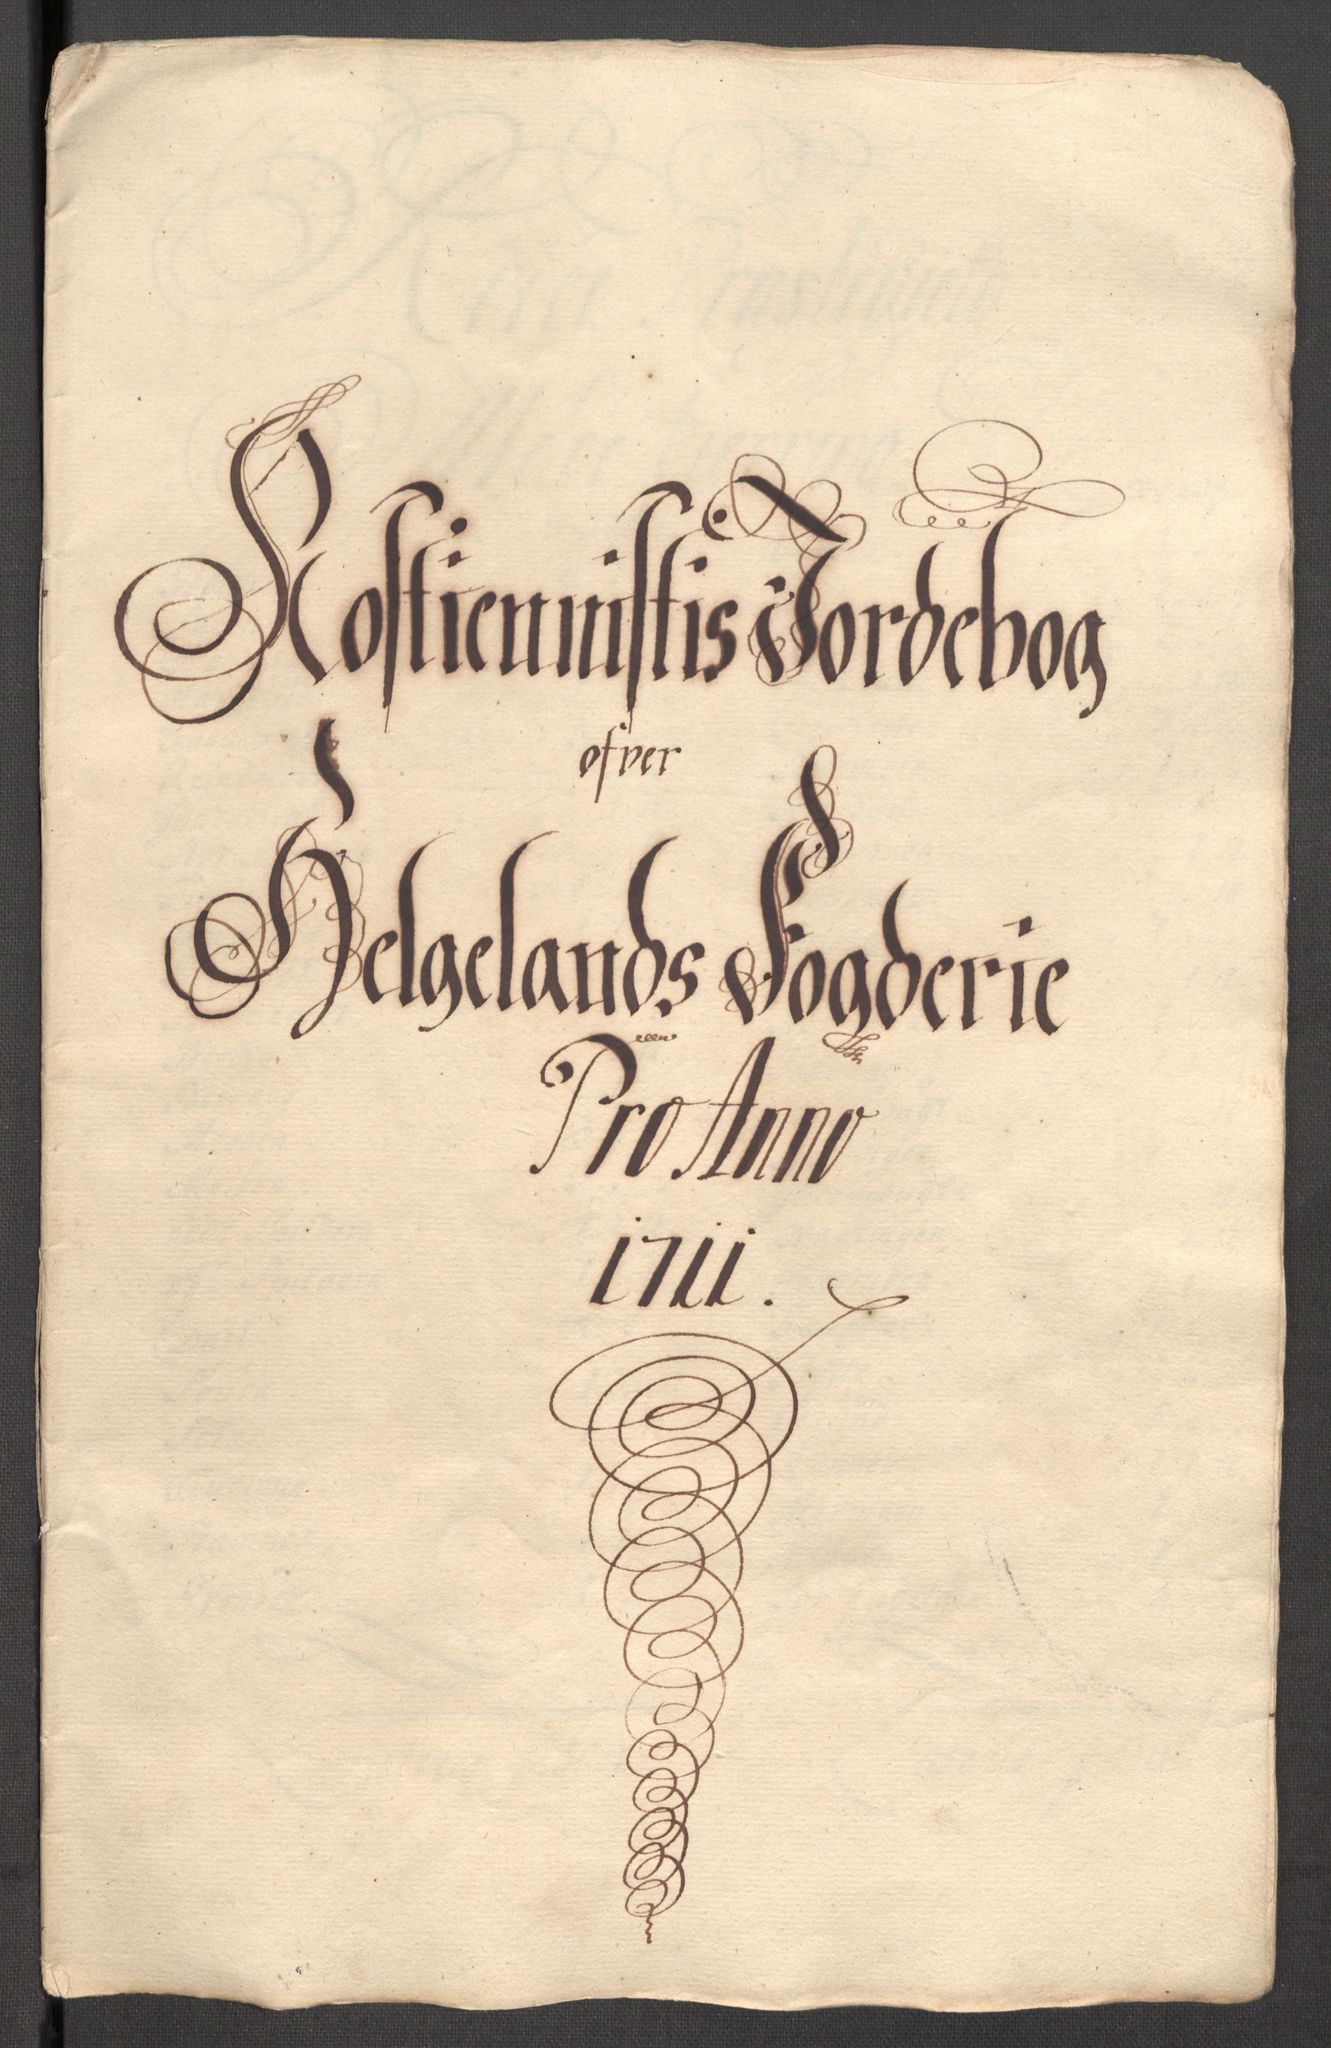 Rostiennistis Jordebog
ofver
Helgelands Fogderie
Pro Anno
1711.